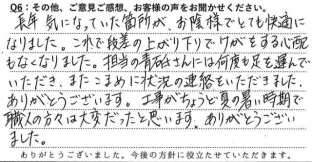 Q6：その他、ご意見ご感想、お客様の声をお聞かせください。
長年 気になっていた箇所が、お陰様でとても快適に
なりました。これで段差の上がり下りでケガをする心配
もなくなりました。担当の青砥さんには何度も足を運んで
いただき、またこまめに状況の連絡をいただきました。
ありがとうございます。工事がちょうど夏の暑い時期で
職人の方々は大変だったと思います。ありがとうござい
ました。
ありがとうございました。今後の方針に役立たせていただきます。